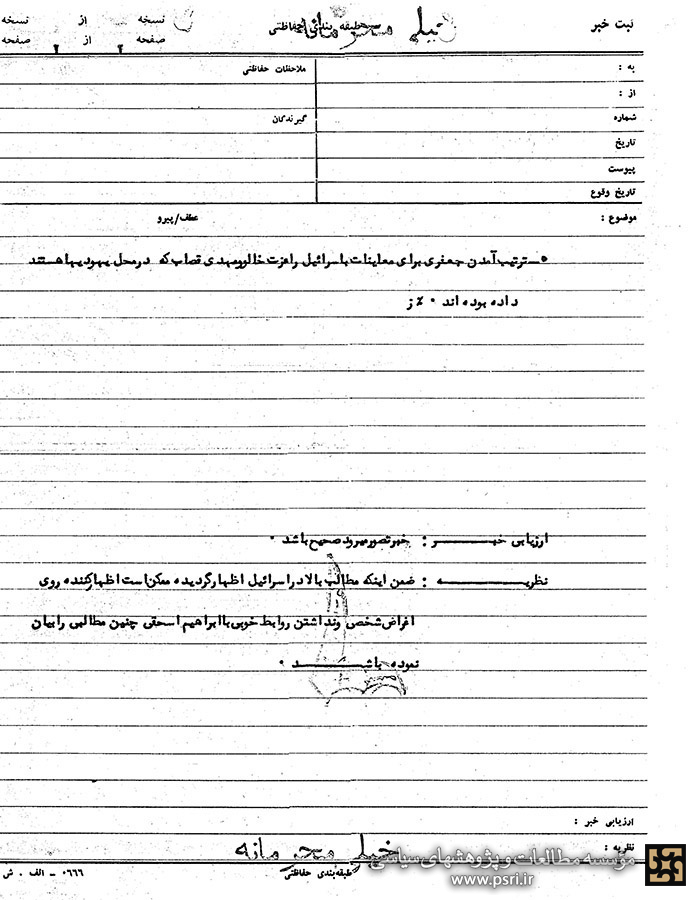 ثبت خبر
خیلی محرمانه
طبقه بندی حفاظتی
نسخه از نسخه
صفحه ۲ از ۲ صفحه
به :
ملاحظات حفاظتی
از :
شماره
گیرندگان
تاریخ
پیوست
تاریخ وقوع
موضوع :
عطف/پیرو
ترتیب آمدن جعفری برای معاینات باسرائیل را عزت خالوومهدی قصاب که در محل یهودیها هستند
داده بوده اند ۰
ارزیابی خبر : خبر تصور میرود صحیح باشد ۰
نظریه : ضمن اینکه مطالب بالا در اسرائیل اظهار گردیده ممکن است اظهار کننده روی
اغراض شخصی ونداشتن روابط خوبی با ابراهیم اسحقی چنین مطالبی را بیان
نموده باشد ۰
ارزیابی خبر :
نظریه :
خیلی محرمانه
طبقه بندی حفاظتی
۰۶۶۶ - الف . ش
موسسه مطالعات و پژوهشهای سیاسی
www.psri.ir